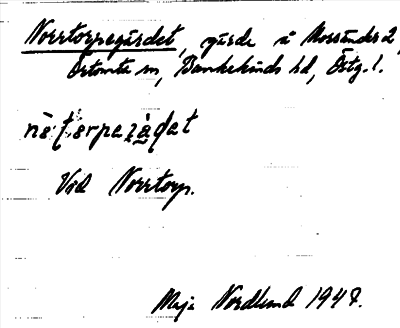 Norrtorpagärdet, gärde i Mossända 2,
Örtomta sn, Bankekinds hd, Östg. l.
Vid Norrtorp.
Maja Nordlund 1947.